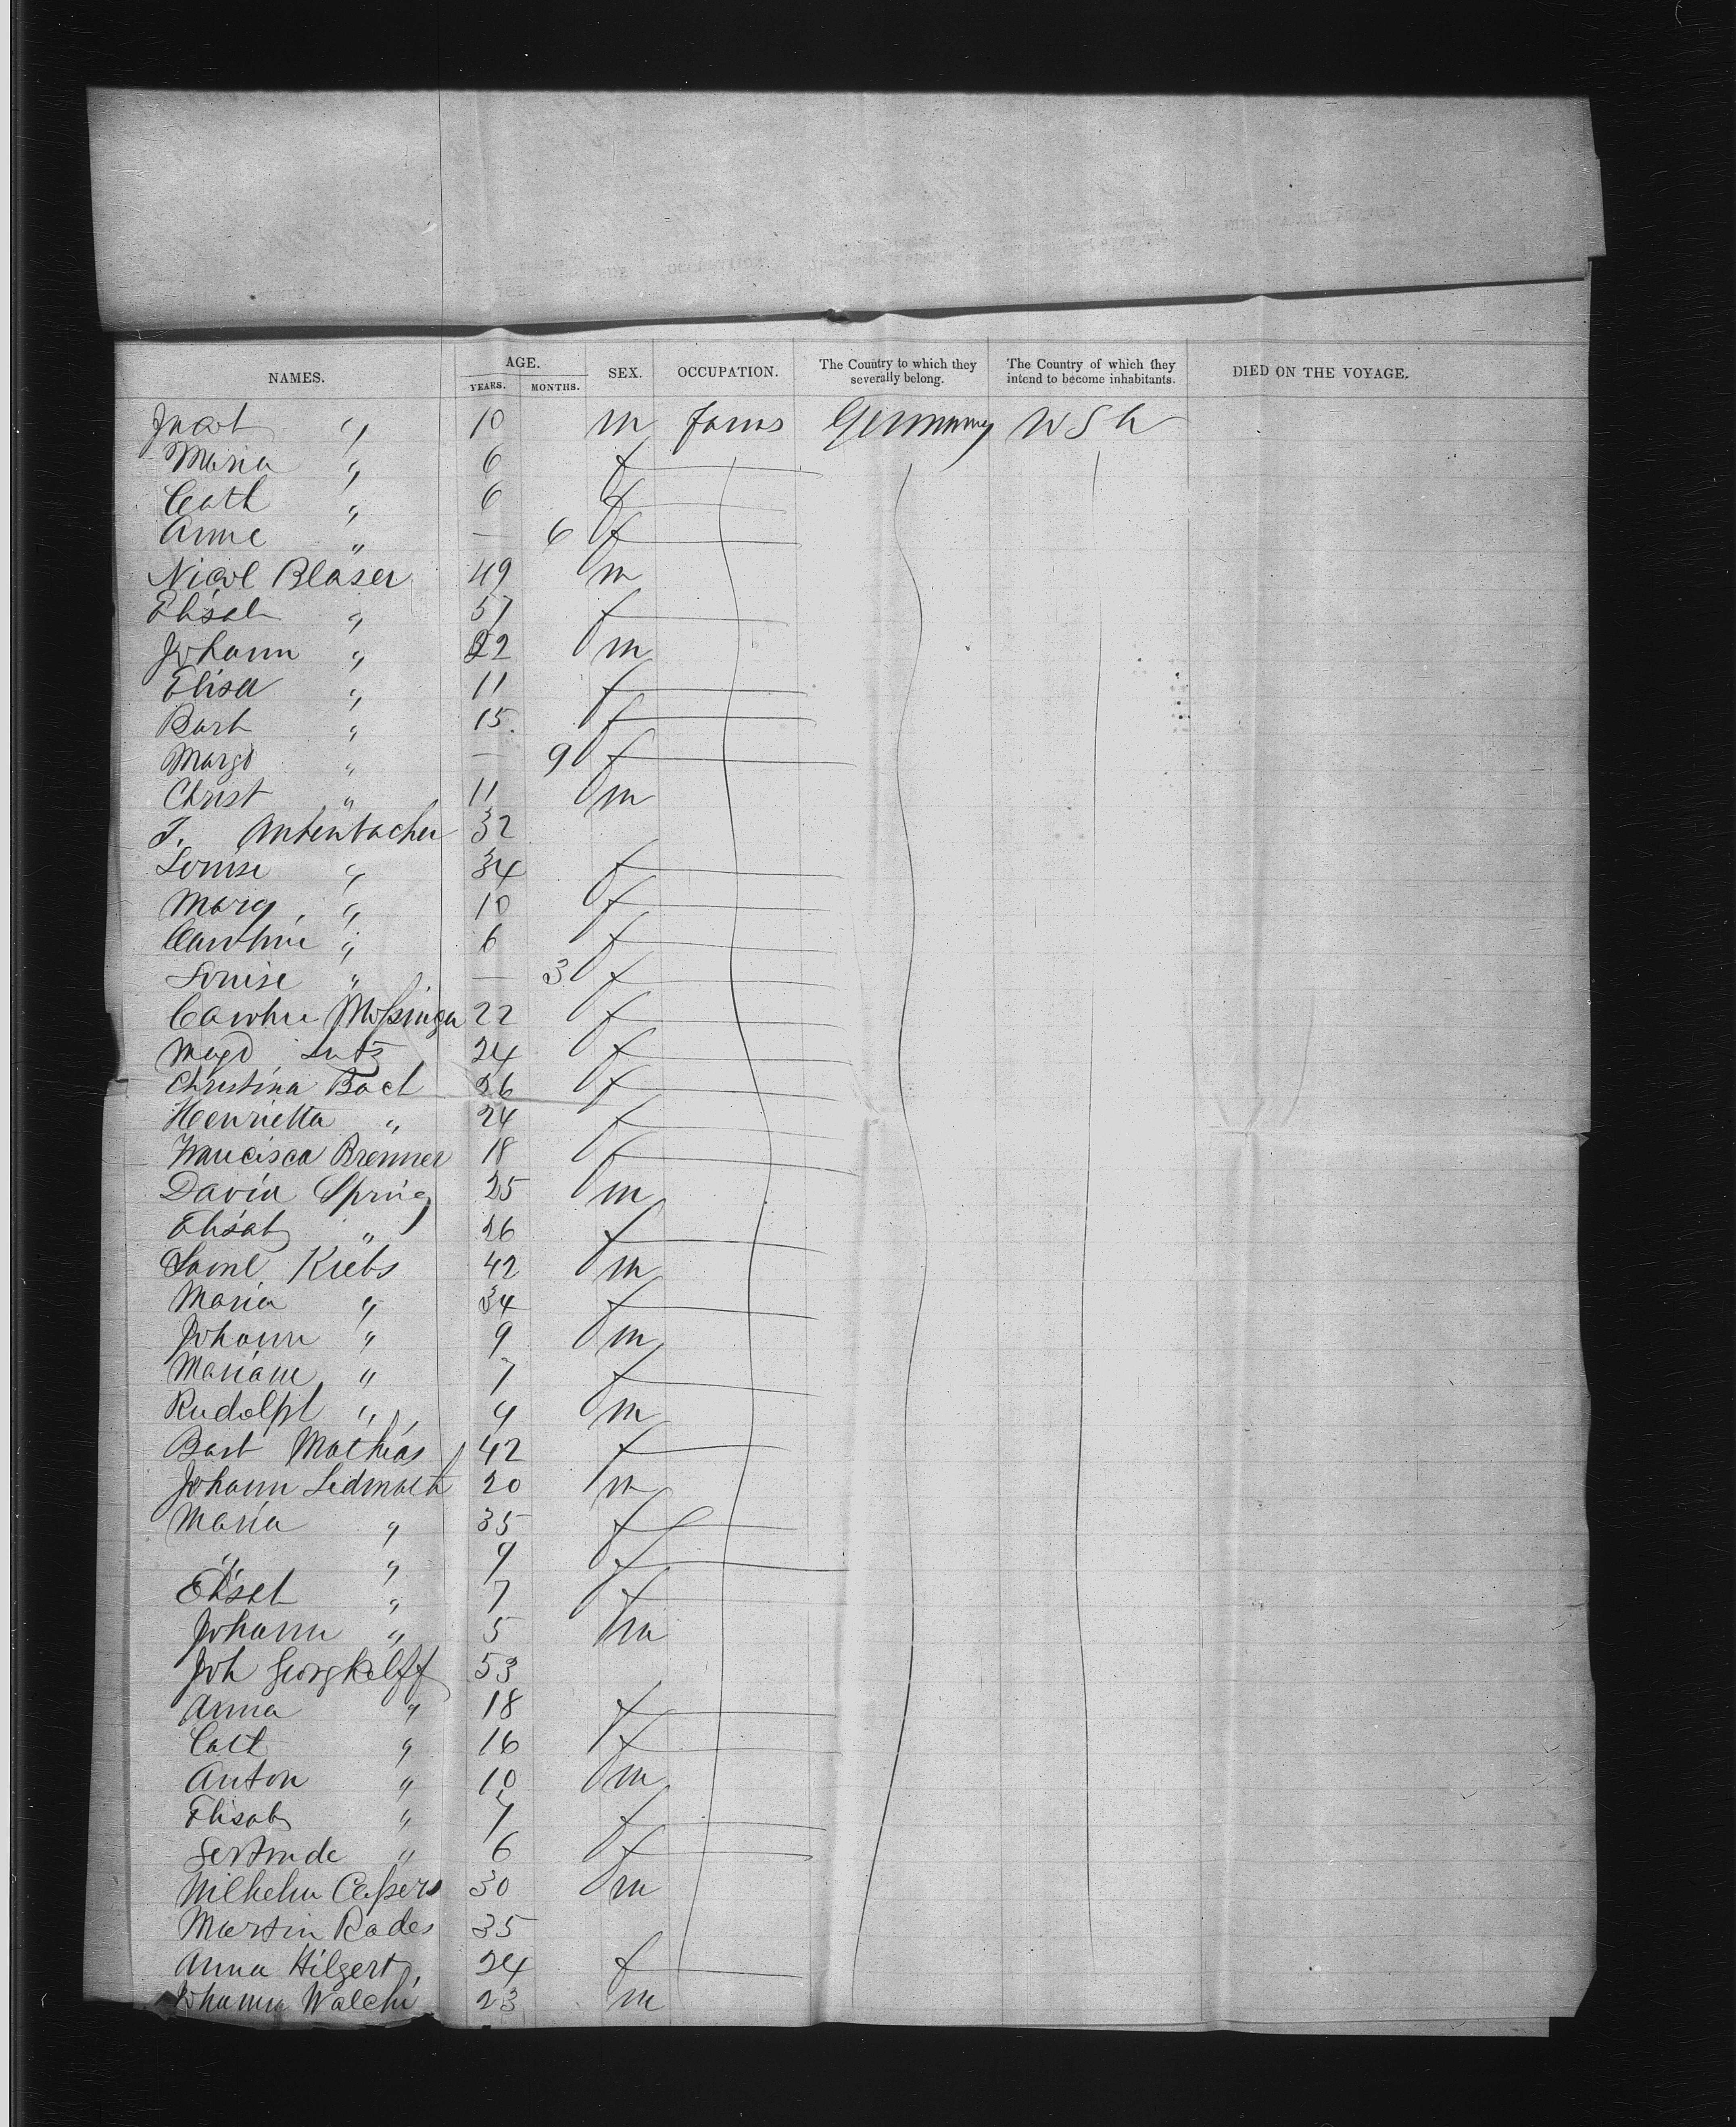 NAMES. AGE. YEARS. MONTHS. SEX. OCCUPATION. The Country to which they severally belong. The Country of which they intend to become inhabitants. DIED ON THE VOYAGE.
Jacob " 10 m Germany
Maria " 6 f
Cath " 6 f
Anne " — 6 f
Nicol Blaser 49 m
Elisab " 57 f
Johann " 22 m
Elisa " 11 f
Barb " 15 f
Margd " — 9 f
Christ " 11 m
J. 32
Louise " 34 f
Marg. " 10 f
Caroline " 6 f
Louise " — 3 f
22 f
Magd Lutz 24 f
Christina 26 f
Henrietta " 24 f
Francisca Brenner 18 f
David Spring 25 m
Elisab " 26 f
Saml Krebs 42 m
Maria " 34 f
Johann " 9 m
Mariane " 7 f
Rudolph " 4 m
Barb Mathias 42 f
Johann 20 m
Maria " 35 f
" " 9 f
Elisab " 7 f
Johann " 5 m
Joh Georg 53
Anna " 18 f
Cath " 16 f
Anton " 10 m
Elisab " 7 f
Gertrude " 6 f
Wilhelm Caspers 30 m
Martin Rades 35
Anna Hilgert 24 f
Johann Walchi 23 m